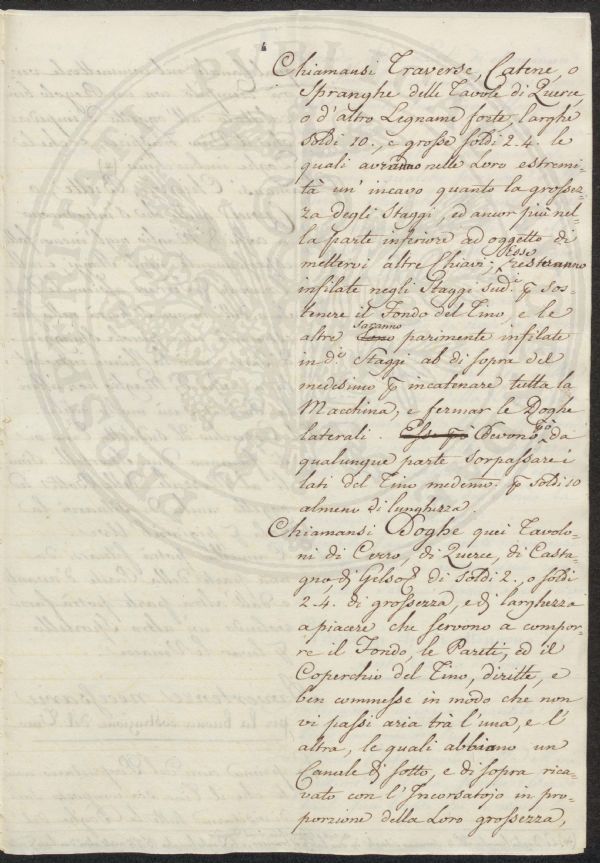 Chiamansi Traverse, Catene, o
Spranghe delle Tavole di Querce,
o d'altro Legname forte, larghe
soldi 10. e grosse soldi 2.4. le
quali avranno nelle Loro estremi=
tà un'incavo quanto la grossez=
za degli Staggi, ed ancor più nel=
la parte inferiore ad oggetto di
mettervi altre Chiavi; Esse resteranno
infilate negli Staggi sud.i p sos=
tenere il Fondo del Tino, e le
altre saranno parimente infilate
in d.i Staggi al di sopra del
medesimo p incatenare tutta la
Macchina, e fermar le Doghe
laterali. Devono da
qualunque parte sorpassare i
lati del Tino medemo. p soldi 10
almeno di lunghezza.
Chiamansi Doghe quei Tavolo=
ni di Cerro, di Querce, di Casta=
gno, di Gelso di soldi 2., o soldi
2.4. di grossezza, e di larghezza
a piacere che servono a compor=
re il Fondo, le Pareti, ed il
Coperchio del Tino, diritte, e
ben commesse in modo che non
vi passi aria trà l'una, e l'
altra, le quali abbiano un
Canale di sotto, e di sopra rica=
vato con l'Incorsatojo in pro=
porzione della Loro grossezza,